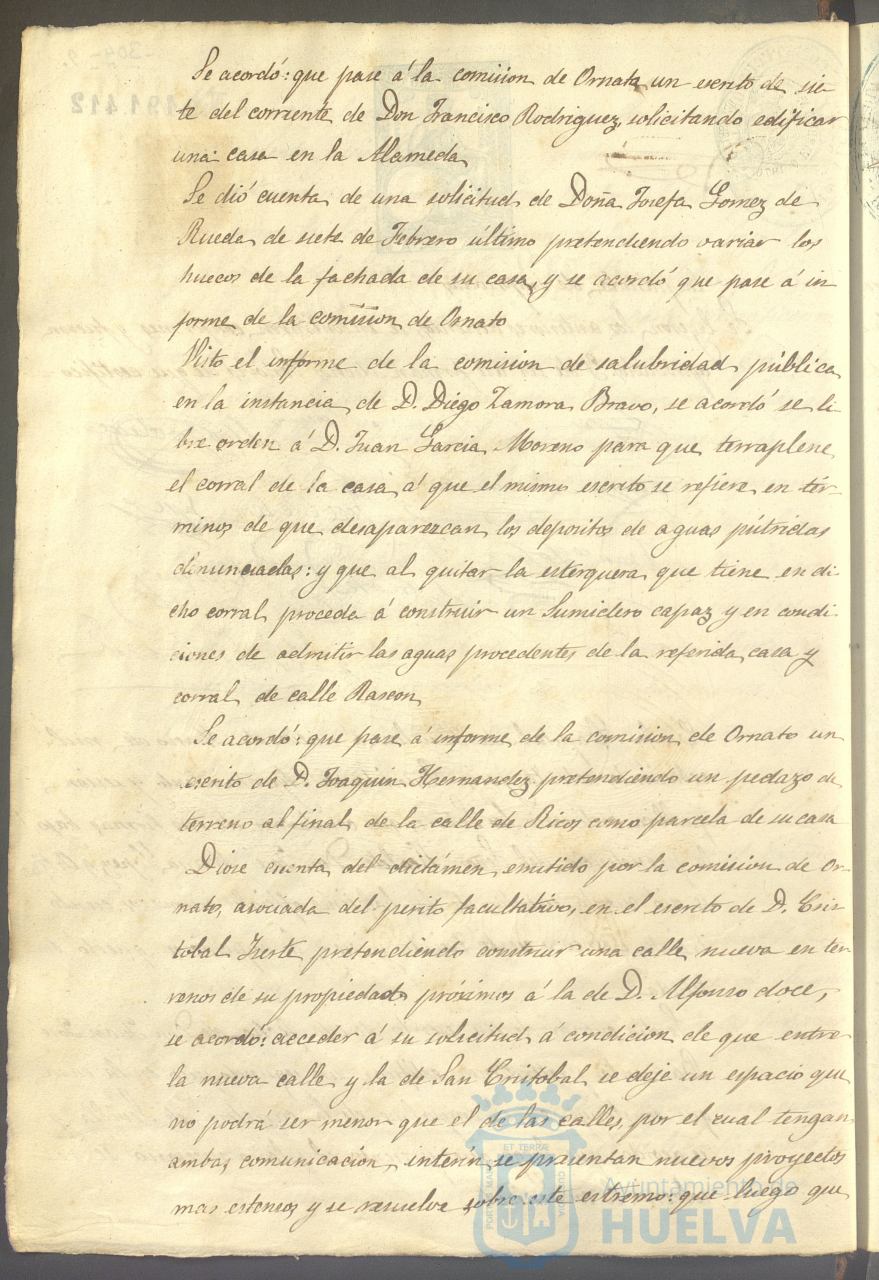 Se acordó: que pase á la comision de Ornato un escrito de sie-
te del corriente de Don Francisco Rodriguez, solicitando edificar
una casa en la Alameda
Se dió cuenta de una solicitud de Doña Josefa Gomez de
Rueda de siete de Febrero último pretendiendo variar los
huecos de la fachada de su casa, y se acordó que pase á in
forme de la comision de Ornato
Visto el informe de la comision de salubridad pública
en la instancia de D. Diego Zamora Bravo, se acordó se li
bre orden á D. Juan Garcia Moreno para que terraplene
el corral de la casa á que el mismo escrito se refiere en tér-
minos de que desaparezcan los depositos de aguas pútridas
denunciadas: y que al quitar la esterquera que tiene en di
cho corral proceda á construir un Sumidero capaz y en condi-
ciones de admitir las aguas procedentes de la referida casa y
corral de calle Rascon
Se acordó: que pase á informe de la comision de Ornato un
escrito de D. Joaquin Hernandez pretendiendo un pedazo de
terreno al final de la calle de Ricos como parcela de su casa
Diose cuenta del dictámen emitido por la comision de Or-
nato, asociada del perito facultativo, en el escrito de D. Cris-
tobal pretendiendo construir una calle nueva en ter
renos de su propiedad próximos á la de D. Alfonso doce,
se acordó: acceder á su solicitud á condicion de que entre
la nueva calle y la de San Cristobal se deje un espacio que
no podrá ser menor que el de las calles, por el cual tengan
ambas comunicacion, interin se presentan nuevos proyectos
mas estensos y se resuelve sobre este estremo: que luego que
ET TERRÆ
Ayuntamiento de
HUELVA